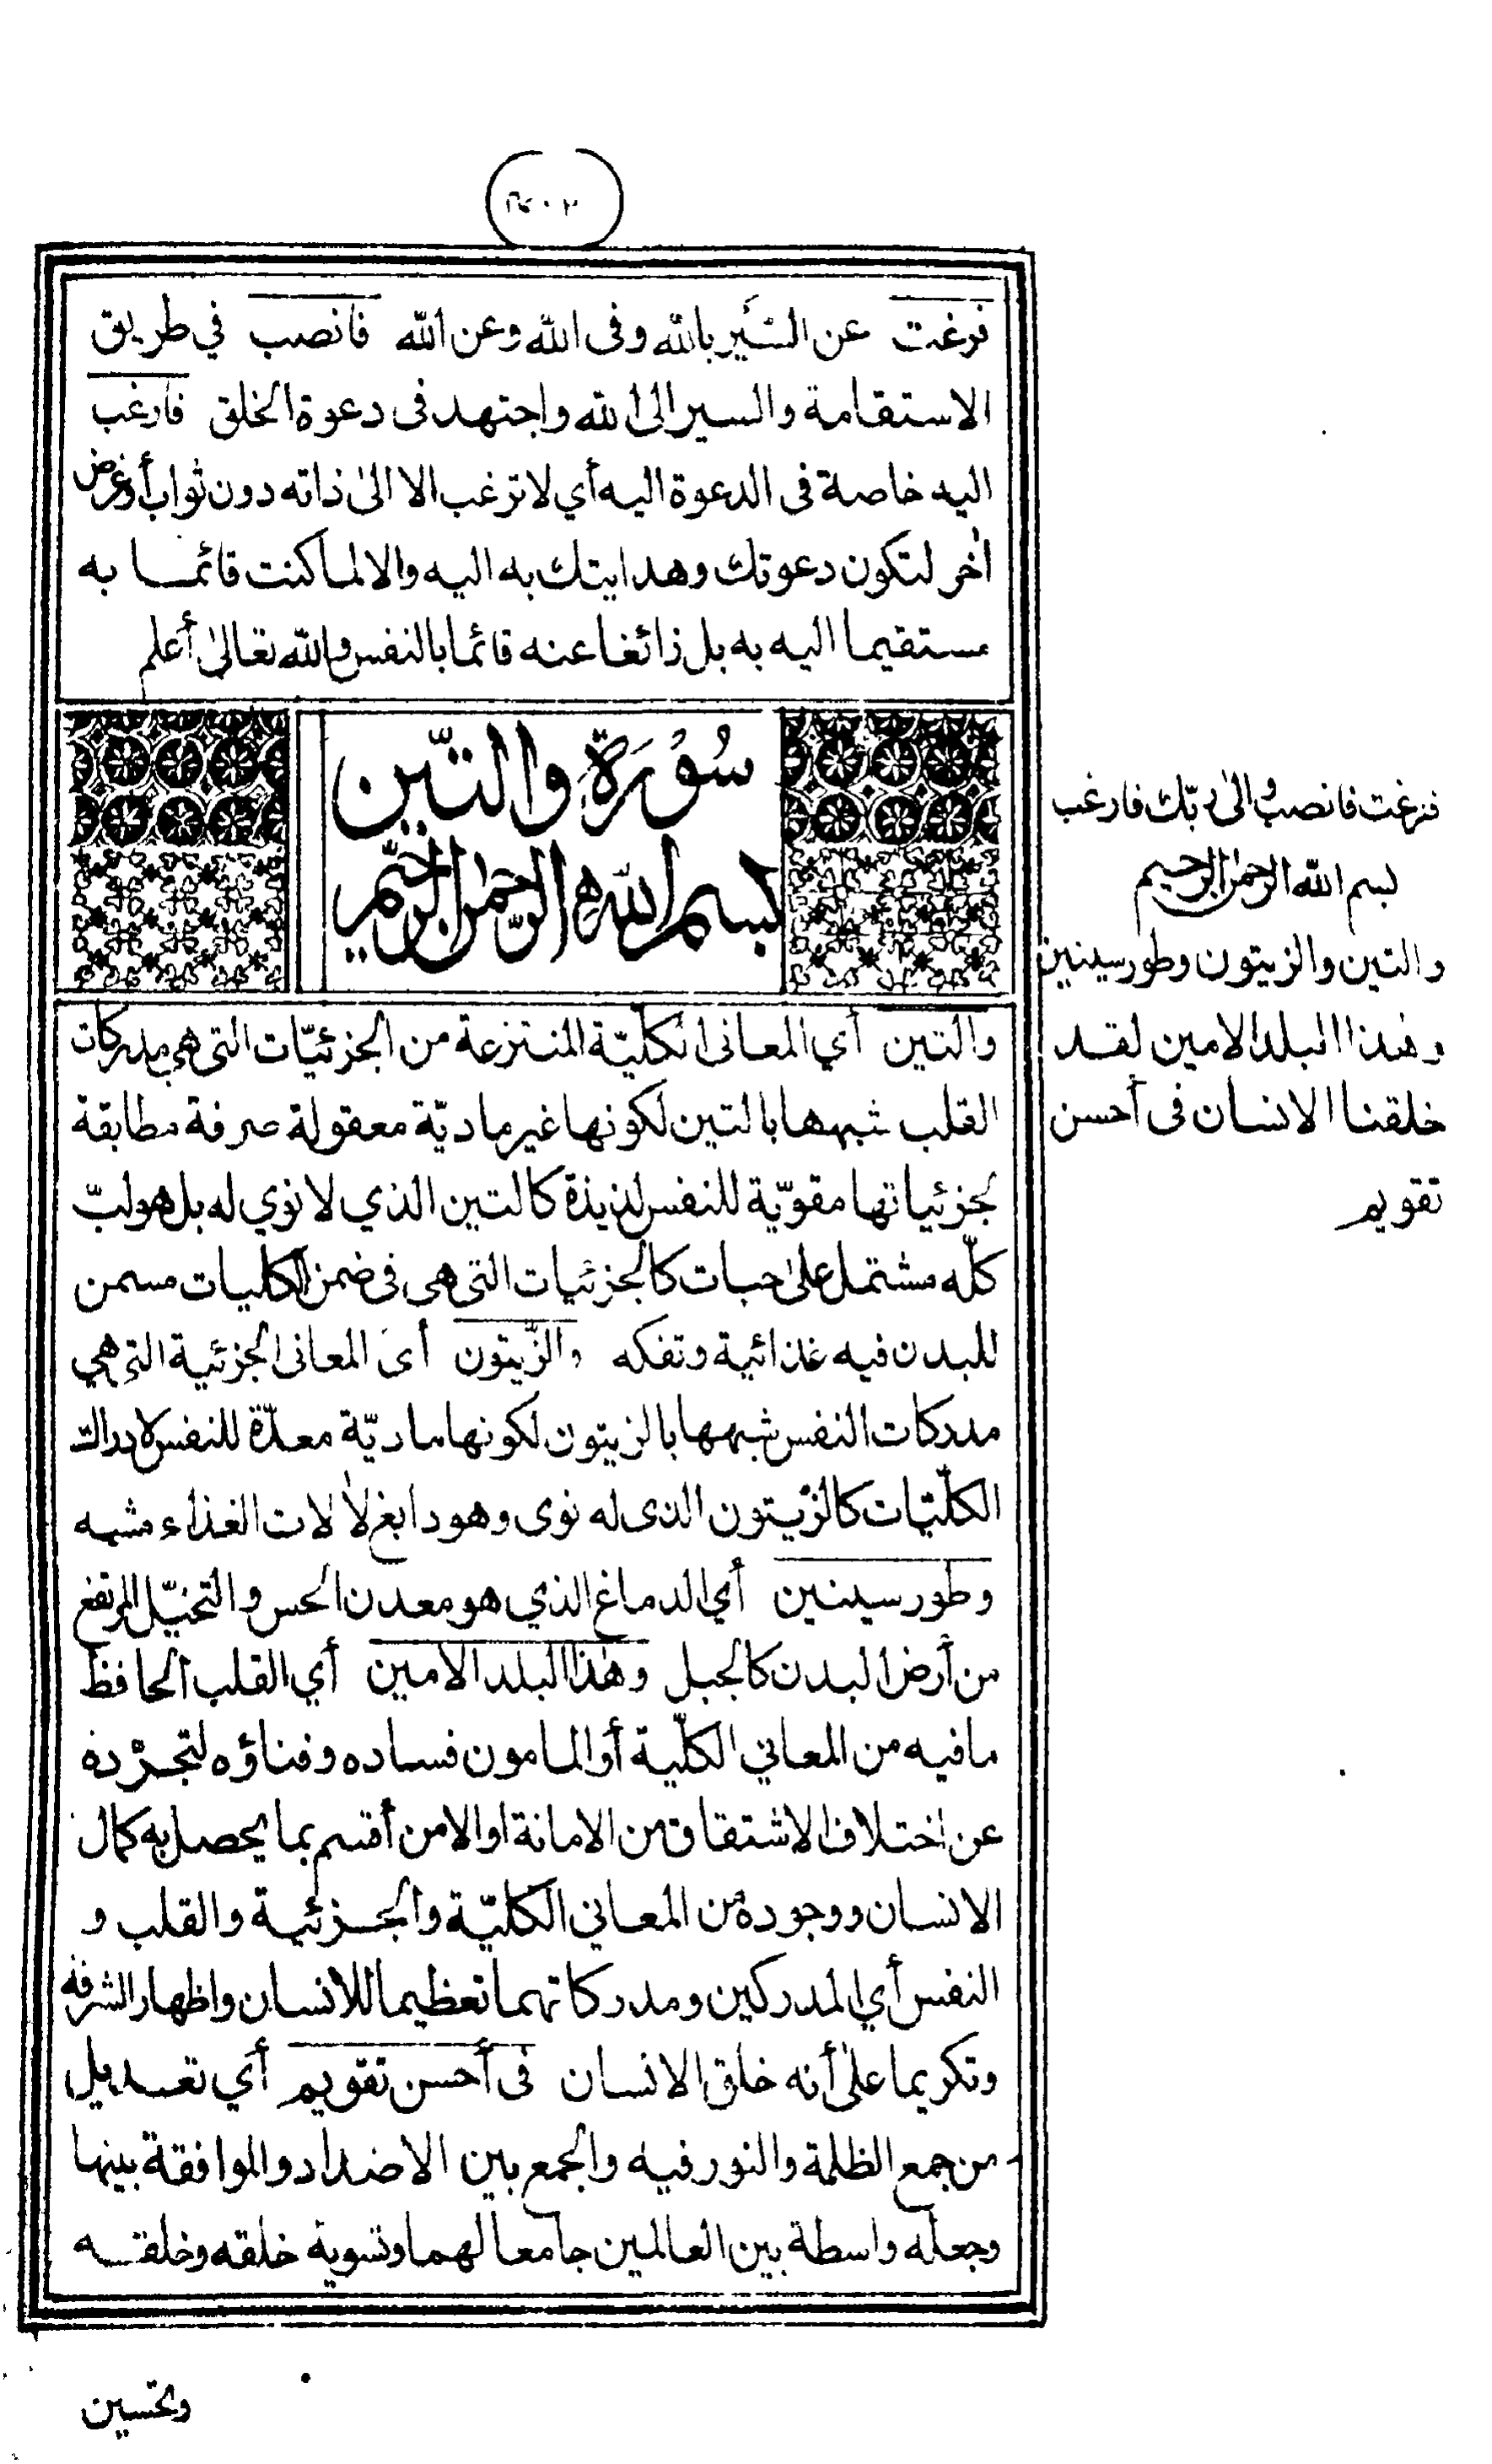 فرغت عن السَّير بالله وفى الله وعن الله فانصب في طريق
الاستقامة والسير الى الله واجتهد فى دعوة الخلق فارغب
اليه خاصة فى الدعوة اليه أي لا ترغب الا الى ذاته دون ثواب أو غرض
اٰخر لتكون دعوتك وهدايتك به اليه والا لما كنت قائما به
مستقيما اليه به بل زائغا عنه قائما بالنفس والله تعالىٰ أعلم
سُوْرَة والتّين
بسم الله الرّحمٰن الرحيّم
والتين أي المعانى الكليّة المنتزعة من الجزئيّات التى هي مدركات
القلب شبهها بالتين لكونها غير ماديّة معقولة صرفة مطابقة
لجزئياتها مقويّة للنفس لذيذة كالتين الذي لا نوي له بل هو لبّ
كلّه مشتمل علىٰ حبات كالجزئيات التى هى فى ضمن الكليات مسمن
للبدن فيه غذائية وتفكه والزّيتون أى المعانى الجزئية التى هي
مدركات النفس شبهها بالزيتون لكونها ماديّة معدّة للنفس لادراك
الكلّيات كالزّيتون الذى له نوى وهو دابغ لاٰلات الغذاء مشبه
وطور سينين أي الدماغ الذي هو معدن الحس والتخيّل المرتفع
من أرض البدن كالجبل وهٰذا البلد الامين أي القلب الحافظ
ما فيه من المعاني الكلّية أو المامون فساده وفناؤه لتجرّده
عن اختلاف الاشتقاق من الامانة او الامن أقسم بما يحصل به كمال
الانسان ووجوده من المعاني الكليّة والجزئية والقلب و
النفس أي المدركين ومدركاتهما تعظيما للانسان واظهارا لشرفه
وتكريما علىٰ أنه خلق الانسان فى أحسن تقويم أي تعديل
من جمع الظلمة والنور فيه والجمع بين الاضداد والموافقة بينها
وجعله واسطة بين العالمين جامعا لهما وتسوية خلقه وخلقته
وتحسين
فرغت فانصب والىٰ ربّك فارغب
بسم الله الرحمٰن الرحيم
والتين والزيتون وطور سينين
وهٰذا البلد الامين لقد
خلقنا الانسان فى أحسن
تقويم